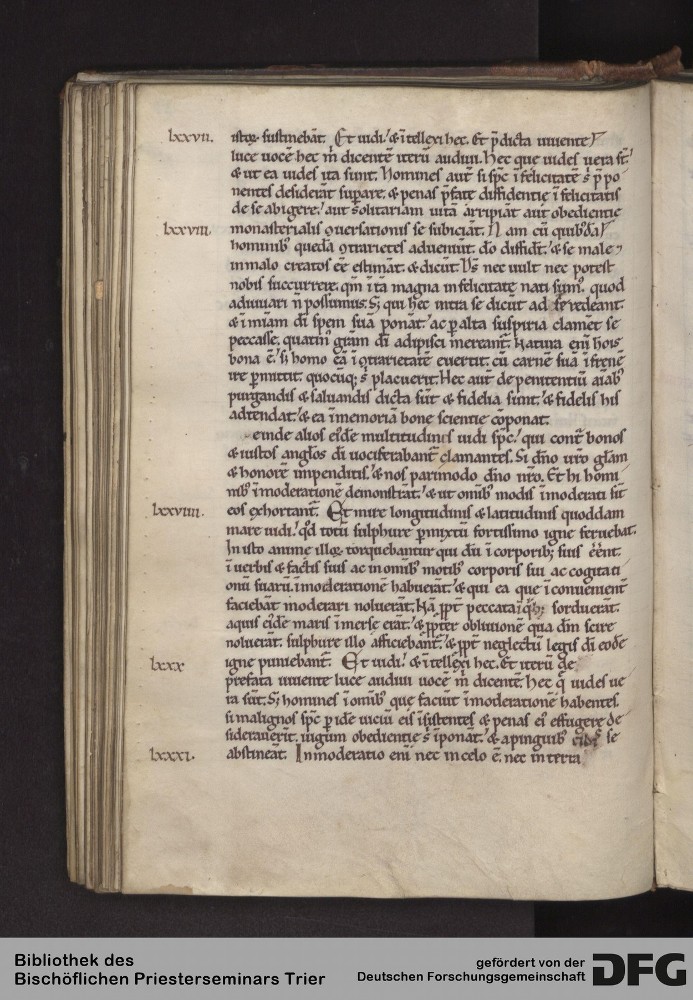 lxxvii. istoꝝ sustinebāt. Et uidi ⁊ ītellexi hec. Et p̄dicta uiuente
luce uocē hec m̄ dicentē iterū audiui. Hec que uides uera st̄
⁊ ut ea uides ita sunt. Homines aut̄ si sp̄c īfelicitatē s̄ p̄po
nentes desiderāt supare. ⁊ penas p̄fatę diffidentie īfelicitatis
de se abigere. aut solitariam uitā arripiāt aut obedientie
lxxviii. monasterialis ꝯuersationis se subiciāt. Nam cū quibꝰdā
hominibꝰ quedā ꝯtrarietes adueniūt. dō diffidt̄. ⁊ se male
in malo creatos eē estimāt. ⁊ dicūt. Ds̄ nec uult nec potest
nobis succurrere. qm̄ ī tā magna infelicitate nati sumꝰ. quod
adiuuari n̄ possumus. S; qui hec intra se dicūt ad se redeant.
⁊ ī miam di spem suā ponāt. ac p alta suspiria clamēt se
peccasse. quatinꝰ grām dī adipisci mereant̄. Natura enī hoīs
bona ē. s; homo eā ī ꝯtrarietatē euertit. cū carnē suā ī frenē
ire pmittit. quocūq; s̄ placuerit. Hec aut̄ de penitentiū aīabꝰ
purgandis ⁊ saluandis dicta sūt ⁊ fidelia sunt. ⁊ fidelis his
adtendat. ⁊ ea ī memoriā bone scientie cōponat.
einde alios eiꝰdē multitudinis uidi sp̄c. qui cont̄ bonos
⁊ iustos anglos dī uociferabant̄ clamantes. Si dn̄o uro glam
⁊ honorē impenditis. ⁊ nos parimodo dn̄o nr̄o. Et hi homi
nibꝰ īmoderationē demonstrāt. ⁊ ut om̄ibꝰ modis īmoderati sīt
lxxviiii. eos exhortant̄. Et mire longitudinis ⁊ latitudinis quoddam
mare uidi. qd̄ totū sulphure pmixtū fortissimo igne feruebat.
In isto anime illoꝝ torquebantur qui dū ī corporibꝫ suis eent.
ī uerbis ⁊ factis suis ac in om̄ibꝰ motibꝰ corporis sui ac cogitati
onū suarū. īmoderationē habuerāt. ⁊ qui ea que ī conuenient̄
faciebāt moderari noluerāt. Nā ppt̄ peccata ī sorduerāt.
aquis eiꝰdē maris īmerse erāt. ⁊ ppter obliuionē qua dm̄ scire
noluerāt. sulphure illo afficiebant̄. ⁊ ppt̄ neglectū legis dī eodē
lxxx igne puniebant̄. Et uidi. ⁊ ītellexi hec. Et iterū de
prefata uiuente luce audiui uocē m̄ dicentē. Hec q̄ uides ue
ra sūt. S; homines ī om̄ibꝰ que faciūt īmoderationē habentes.
si malignos sp̄c p idē uiciū eis īsistentes ⁊ penas eiꝰ effugere de
siderauerīt. iugum obedientie s̄ īponāt. ⁊ a pinguibꝰ cibis se
lxxxi. abstineāt. Inmoderatio enī nec in celo ē. nec in terra
Bibliothek des
Bischöflichen Priesterseminars Trier
gefördert von der
Deutschen Forschungsgemeinschaft
DFG